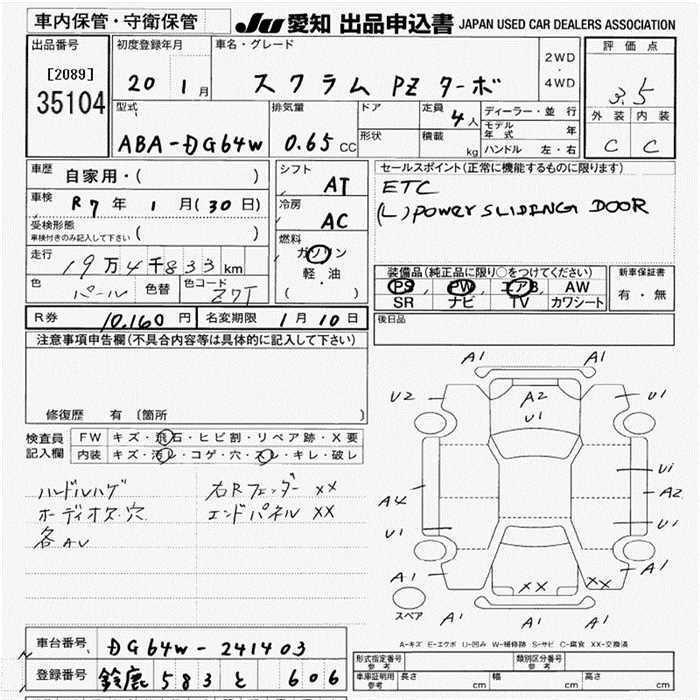 車内保管・守衛保管
JU 愛知 出品申込書 JAPAN USED CAR DEALERS ASSOCIATION
出品番号
[2089]
35104
初度登録年月
20 1月
車名・グレード
スクラム PZ ターボ
2WD
・
4WD
評価点
3.5
外装 内装
C C
型式
ABA-DG64W
排気量
0.65 CC
ドア
形状
定員 4人
積載 kg
ディーラー・並行
モデル年式 年
ハンドル 左・右
車歴 自家用・( )
車検 R7年 1月(30日)
受検形態
車検付きのみ記入して下さい ( )
走行 19万4千833km
色 パール 色替 色コード Z7T
シフト AT
冷房 AC
燃料
ガソリン
軽・油
( )
セールスポイント(正常に機能するものに限ります)
ETC
(L)POWER SLIDING DOOR
装備品(純正品に限り○をつけてください)
PS PW エアB AW
SR ナビ TV カワシート
新車保証書
有・無
後日品
R券 10,160円 名変期限 1月10日
注意事項申告欄(不具合内容等は具体的に記入して下さい)
修復歴 有〔箇所 〕
検査員記入欄
FW キズ・飛石・ヒビ割・リペア跡・X要
内装 キズ・汚レ・コゲ・穴・スレ・キレ・破レ
ハンドルハゲ
オーディオス穴
各AU
右Rフェンダー XX
エンドパネル XX
A1 A1
U2 A2 U1
U1
U1
A4 A2
U1 U1
A1 XX XX A1
スペア A1 A1
A-キズ E-エクボ U-凹み W-補修跡 S-サビ C-腐食 XX-交換済
車台番号 DG64W-241403
登録番号 鈴鹿 583 と 606
形式指定番号 参考
類別区分番号 参考
車庫証明用 参考 長さ cm 幅 cm 高さ cm